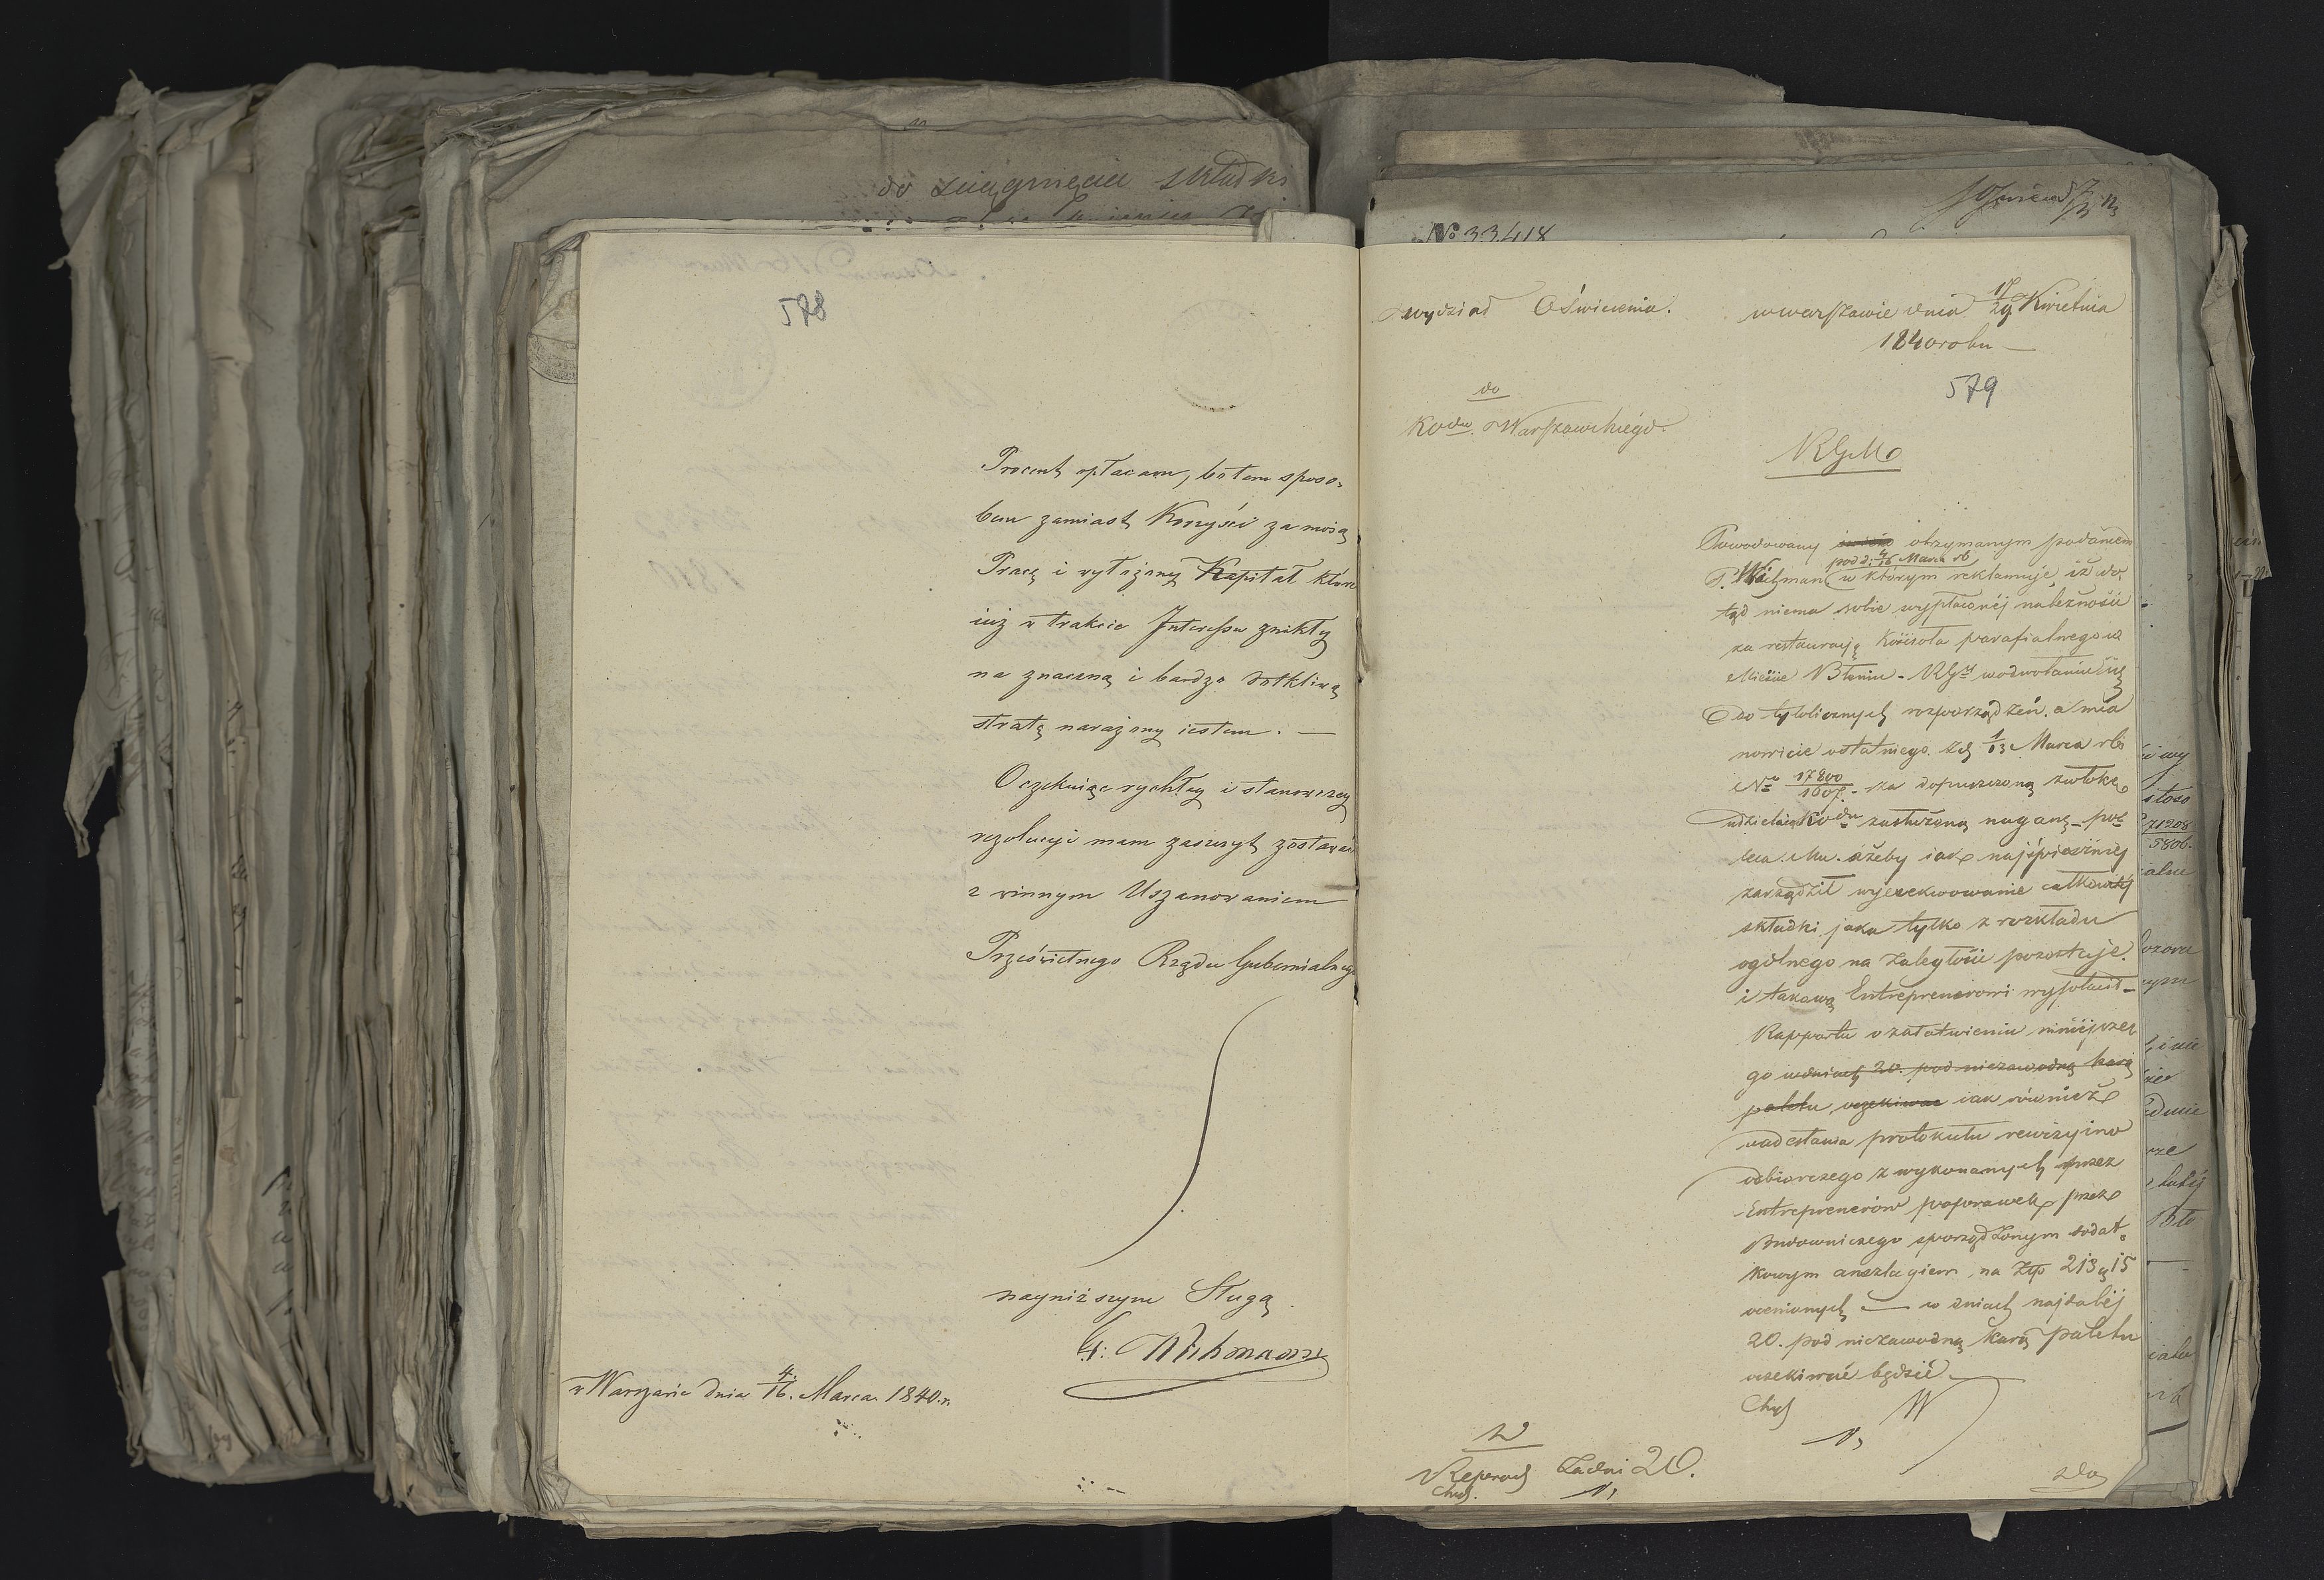 do ściągnięcia składki
578
Procent opłacam, bo tem sposo-
bem zamiast Korzyści za moią
Pracę i wyłożony Kapitał które
iuż w trakcie Interessu znikły
na znaczną i bardzo dotkliwą
stratę narażony iestem. —
Oczekuiąc rychłey i stanowczey
rezolucyi mam zaszczyt zostawać
z winnym Uszanowaniem
Prześwietnego Rządu Gubernialnego
nayniższym Sługą
w Warszawie dnia 4/16. Marca 1840.r.
№ 33418
Wydział Oświecenia.
w Warszawie dnia 17/29 Kwietnia
1840 roku —
579
do
Warszawskiego.
RGMo
Powodowany otrzymanym podaniem
pod d: 4/16 Marca rb
P. Wichman w którym reklamuje, iż do-
tąd niema sobie wypłaconéj należności
za restauracyą Kościoła parafialnego w
Mieście Błoniu - RGst w odwołaniu się
do tylolicznych rozporządzeń, a mia
nowicie ostatniego z d 1/13 Marca rb
№ 17800/1607. za dopuszczoną zwłokę
udziela zasłużoną naganę - pole
ca Mu. ażeby iak najśpieszniéj
zarządził wyexekwowanie całkowitéj
składki jaka tylko z rozkładu
ogólnego na zaległości pozostaje.
i takową Entreprenerowi wypłacił -
Rapportu o załatwieniu niniéjsze
go w dniach 20. pod niezawodną karą
paletu oczekiwać iak również
nadesłania protokułu rewizyino
odbiorczego z wykonanych przez
Entreprenerów poprawek przez
Budowniczego sporządzonym dodat-
kowym anszlagiem na Złp 213 g 15
ocenionych — w dniach najdaléj
20. pod niezawodną karą paletu
oczekiwać będzie.
Za dni 20.